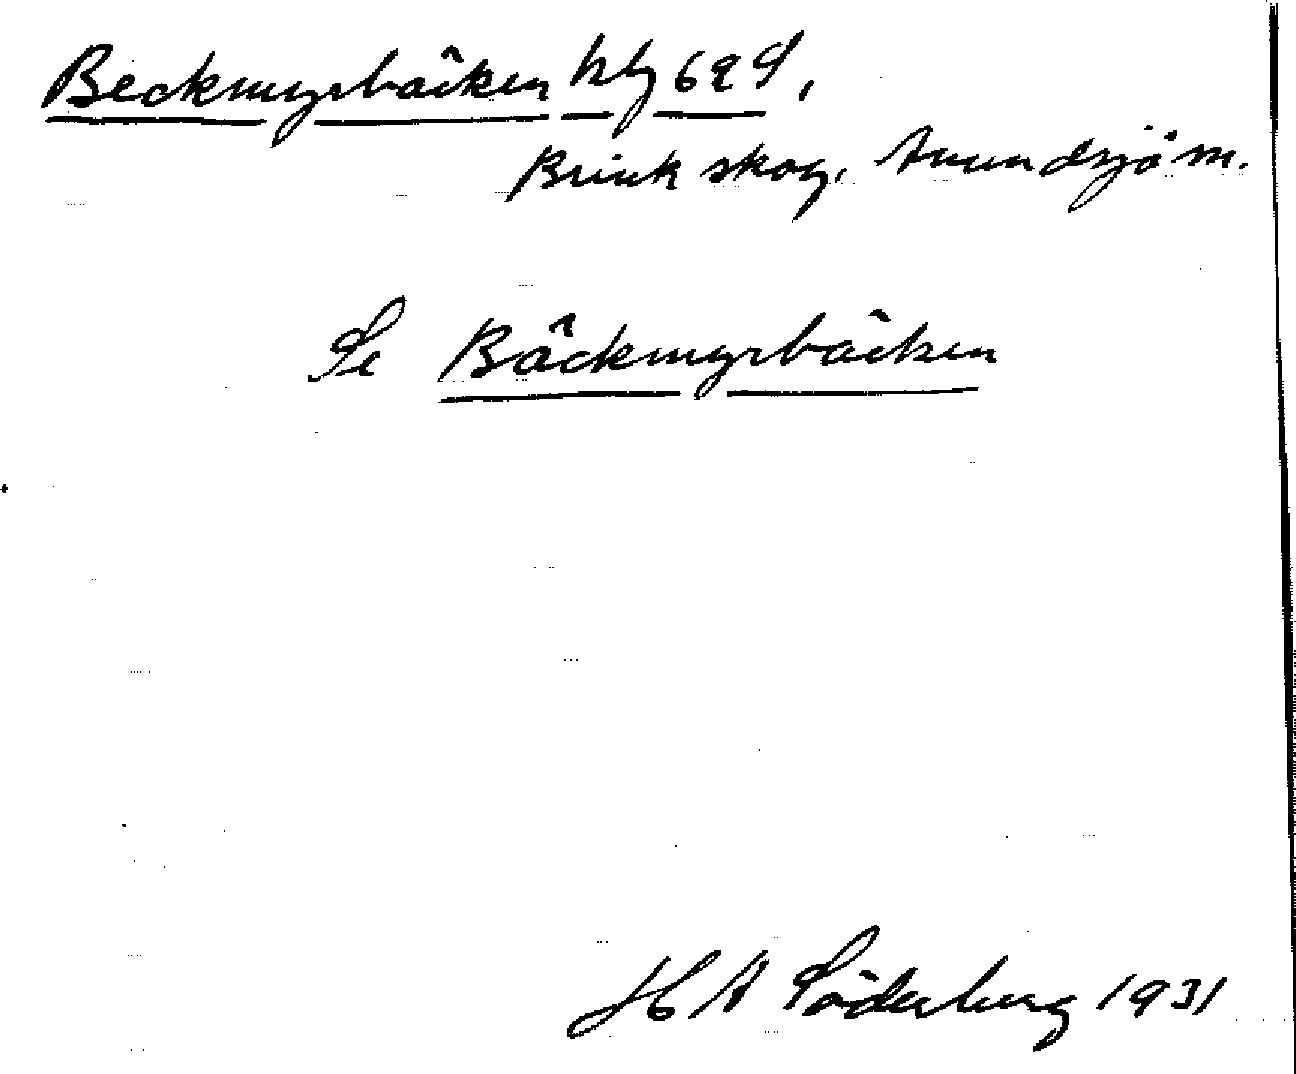 Beckmyrbäcken kbg 62 S,
Brink skog, Anundsjö sn.
Se Bäckmyrbäcken
H A Söderberg 1931